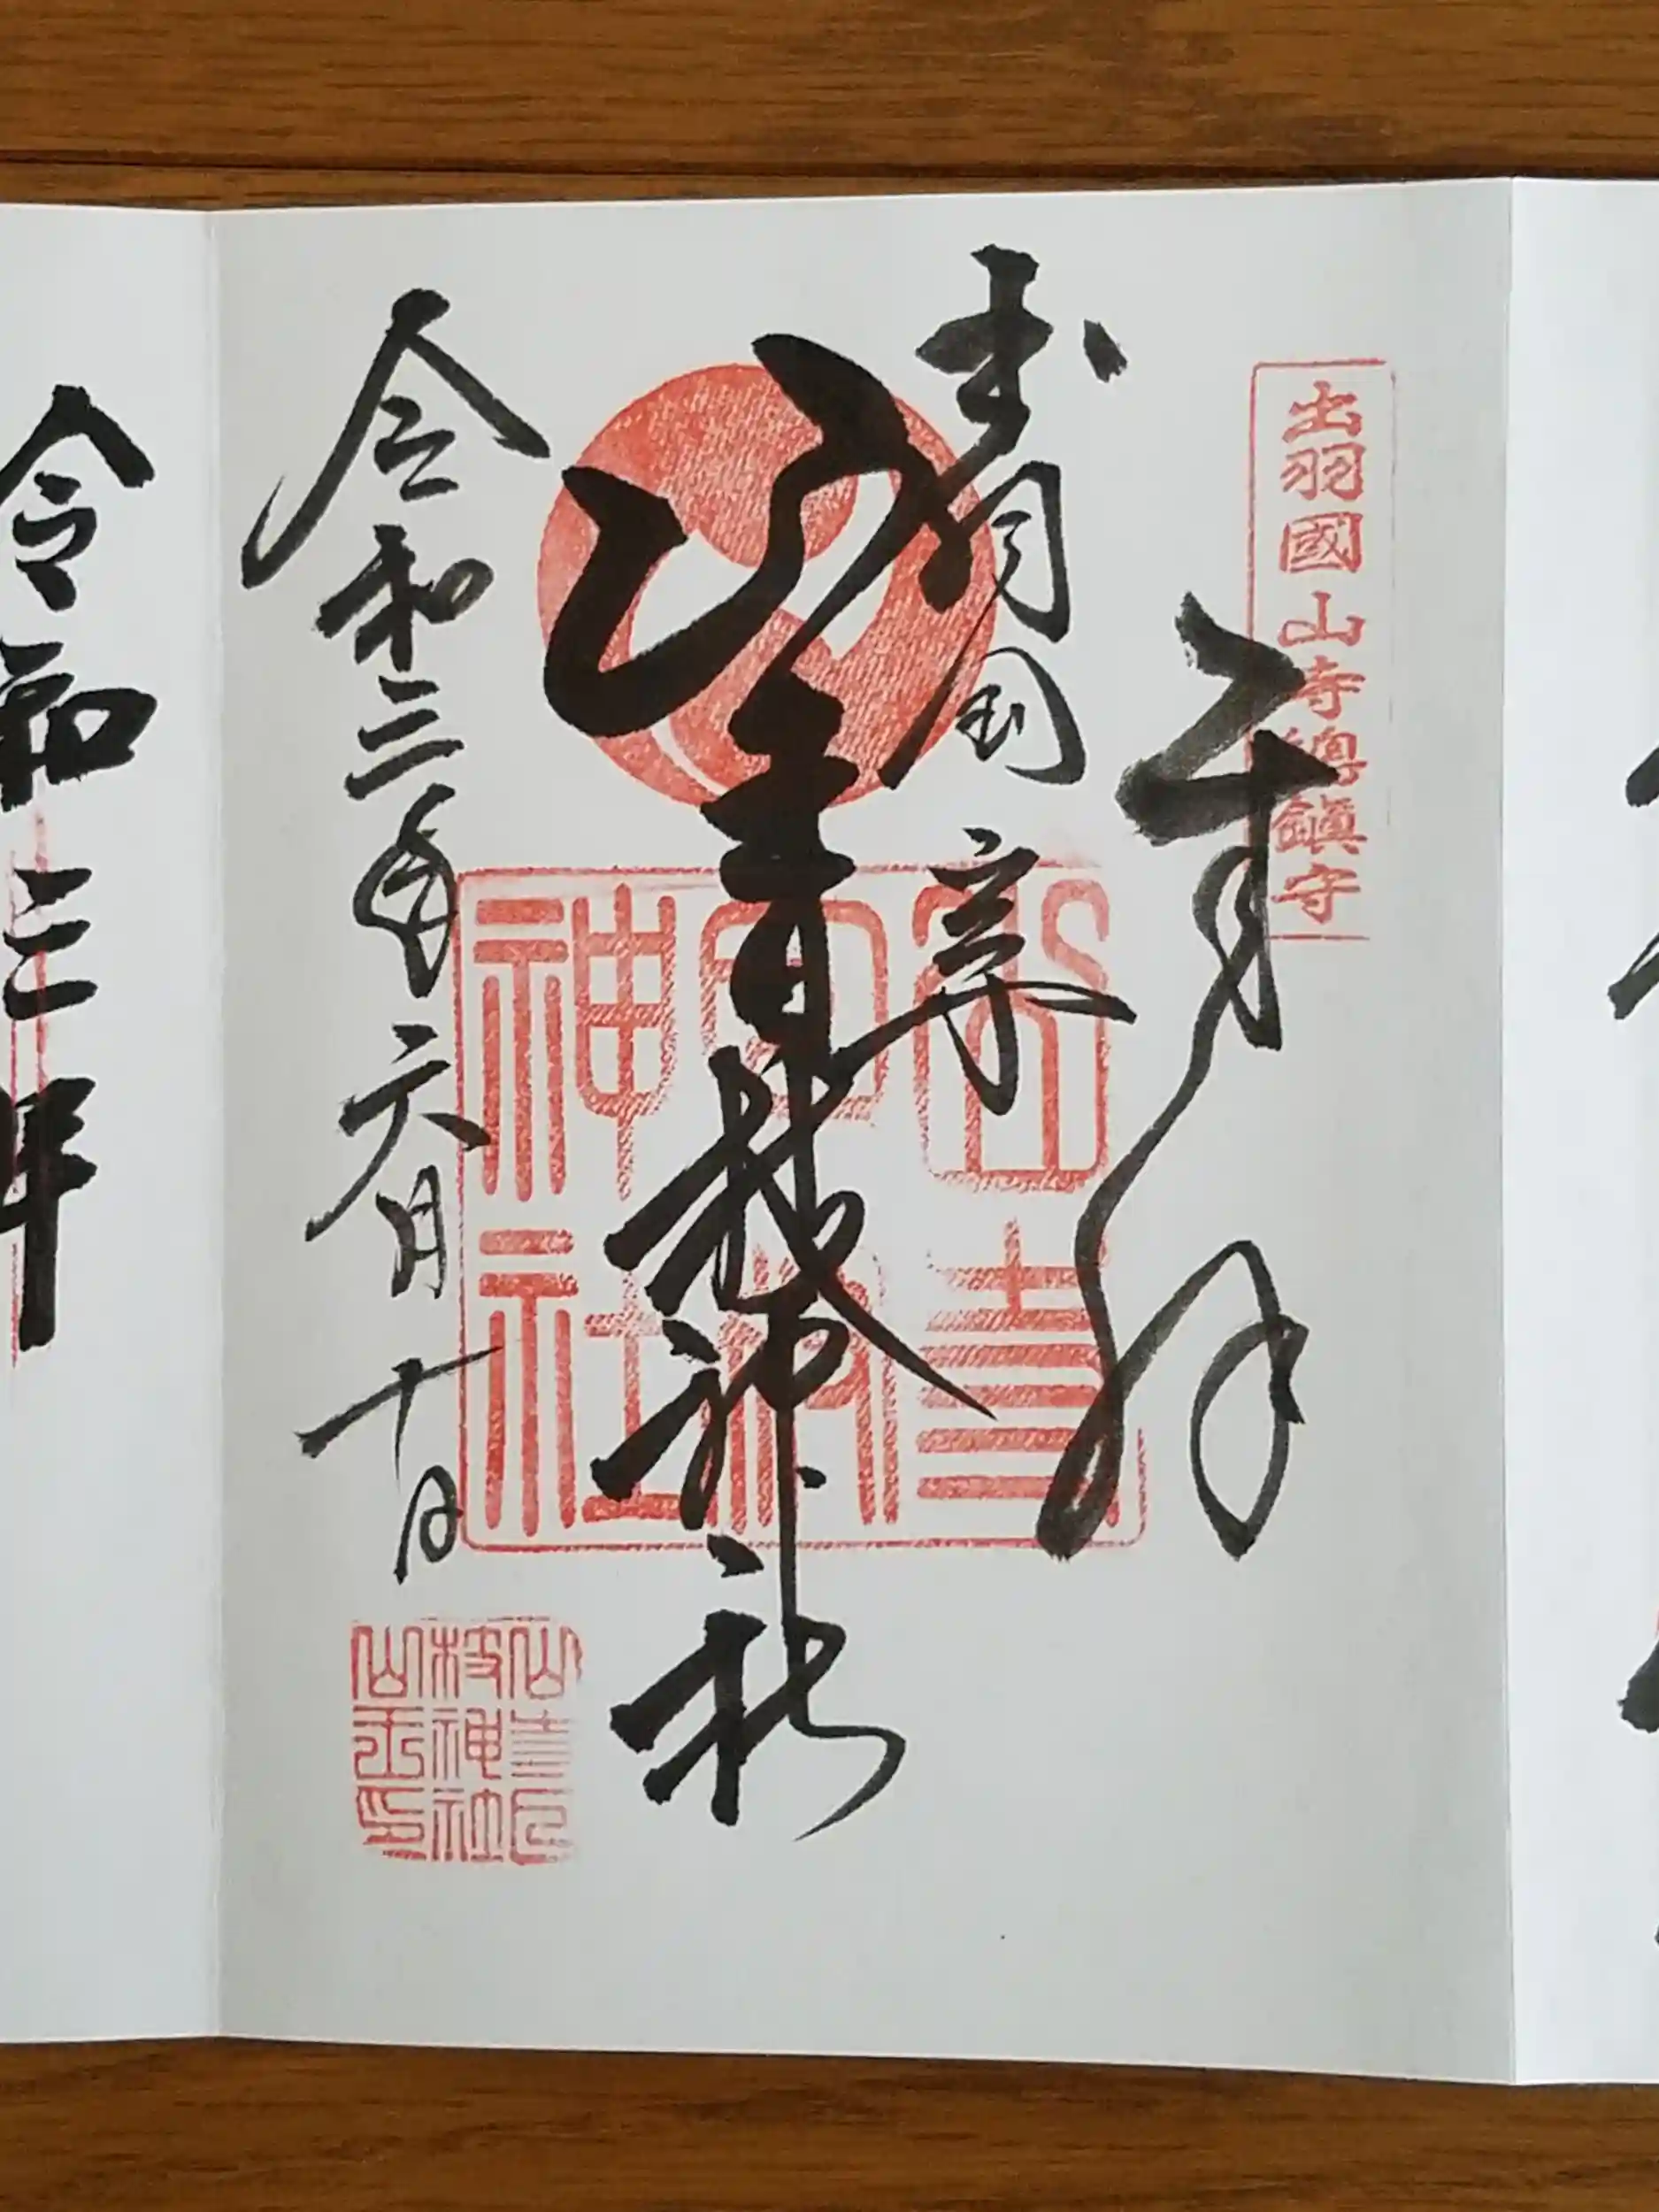 出羽國山寺總鎮守
奉拝
山寺日枝神社
令和三年六月十日
山寺日枝神社
山寺日
枝神社
山王印
令和三年